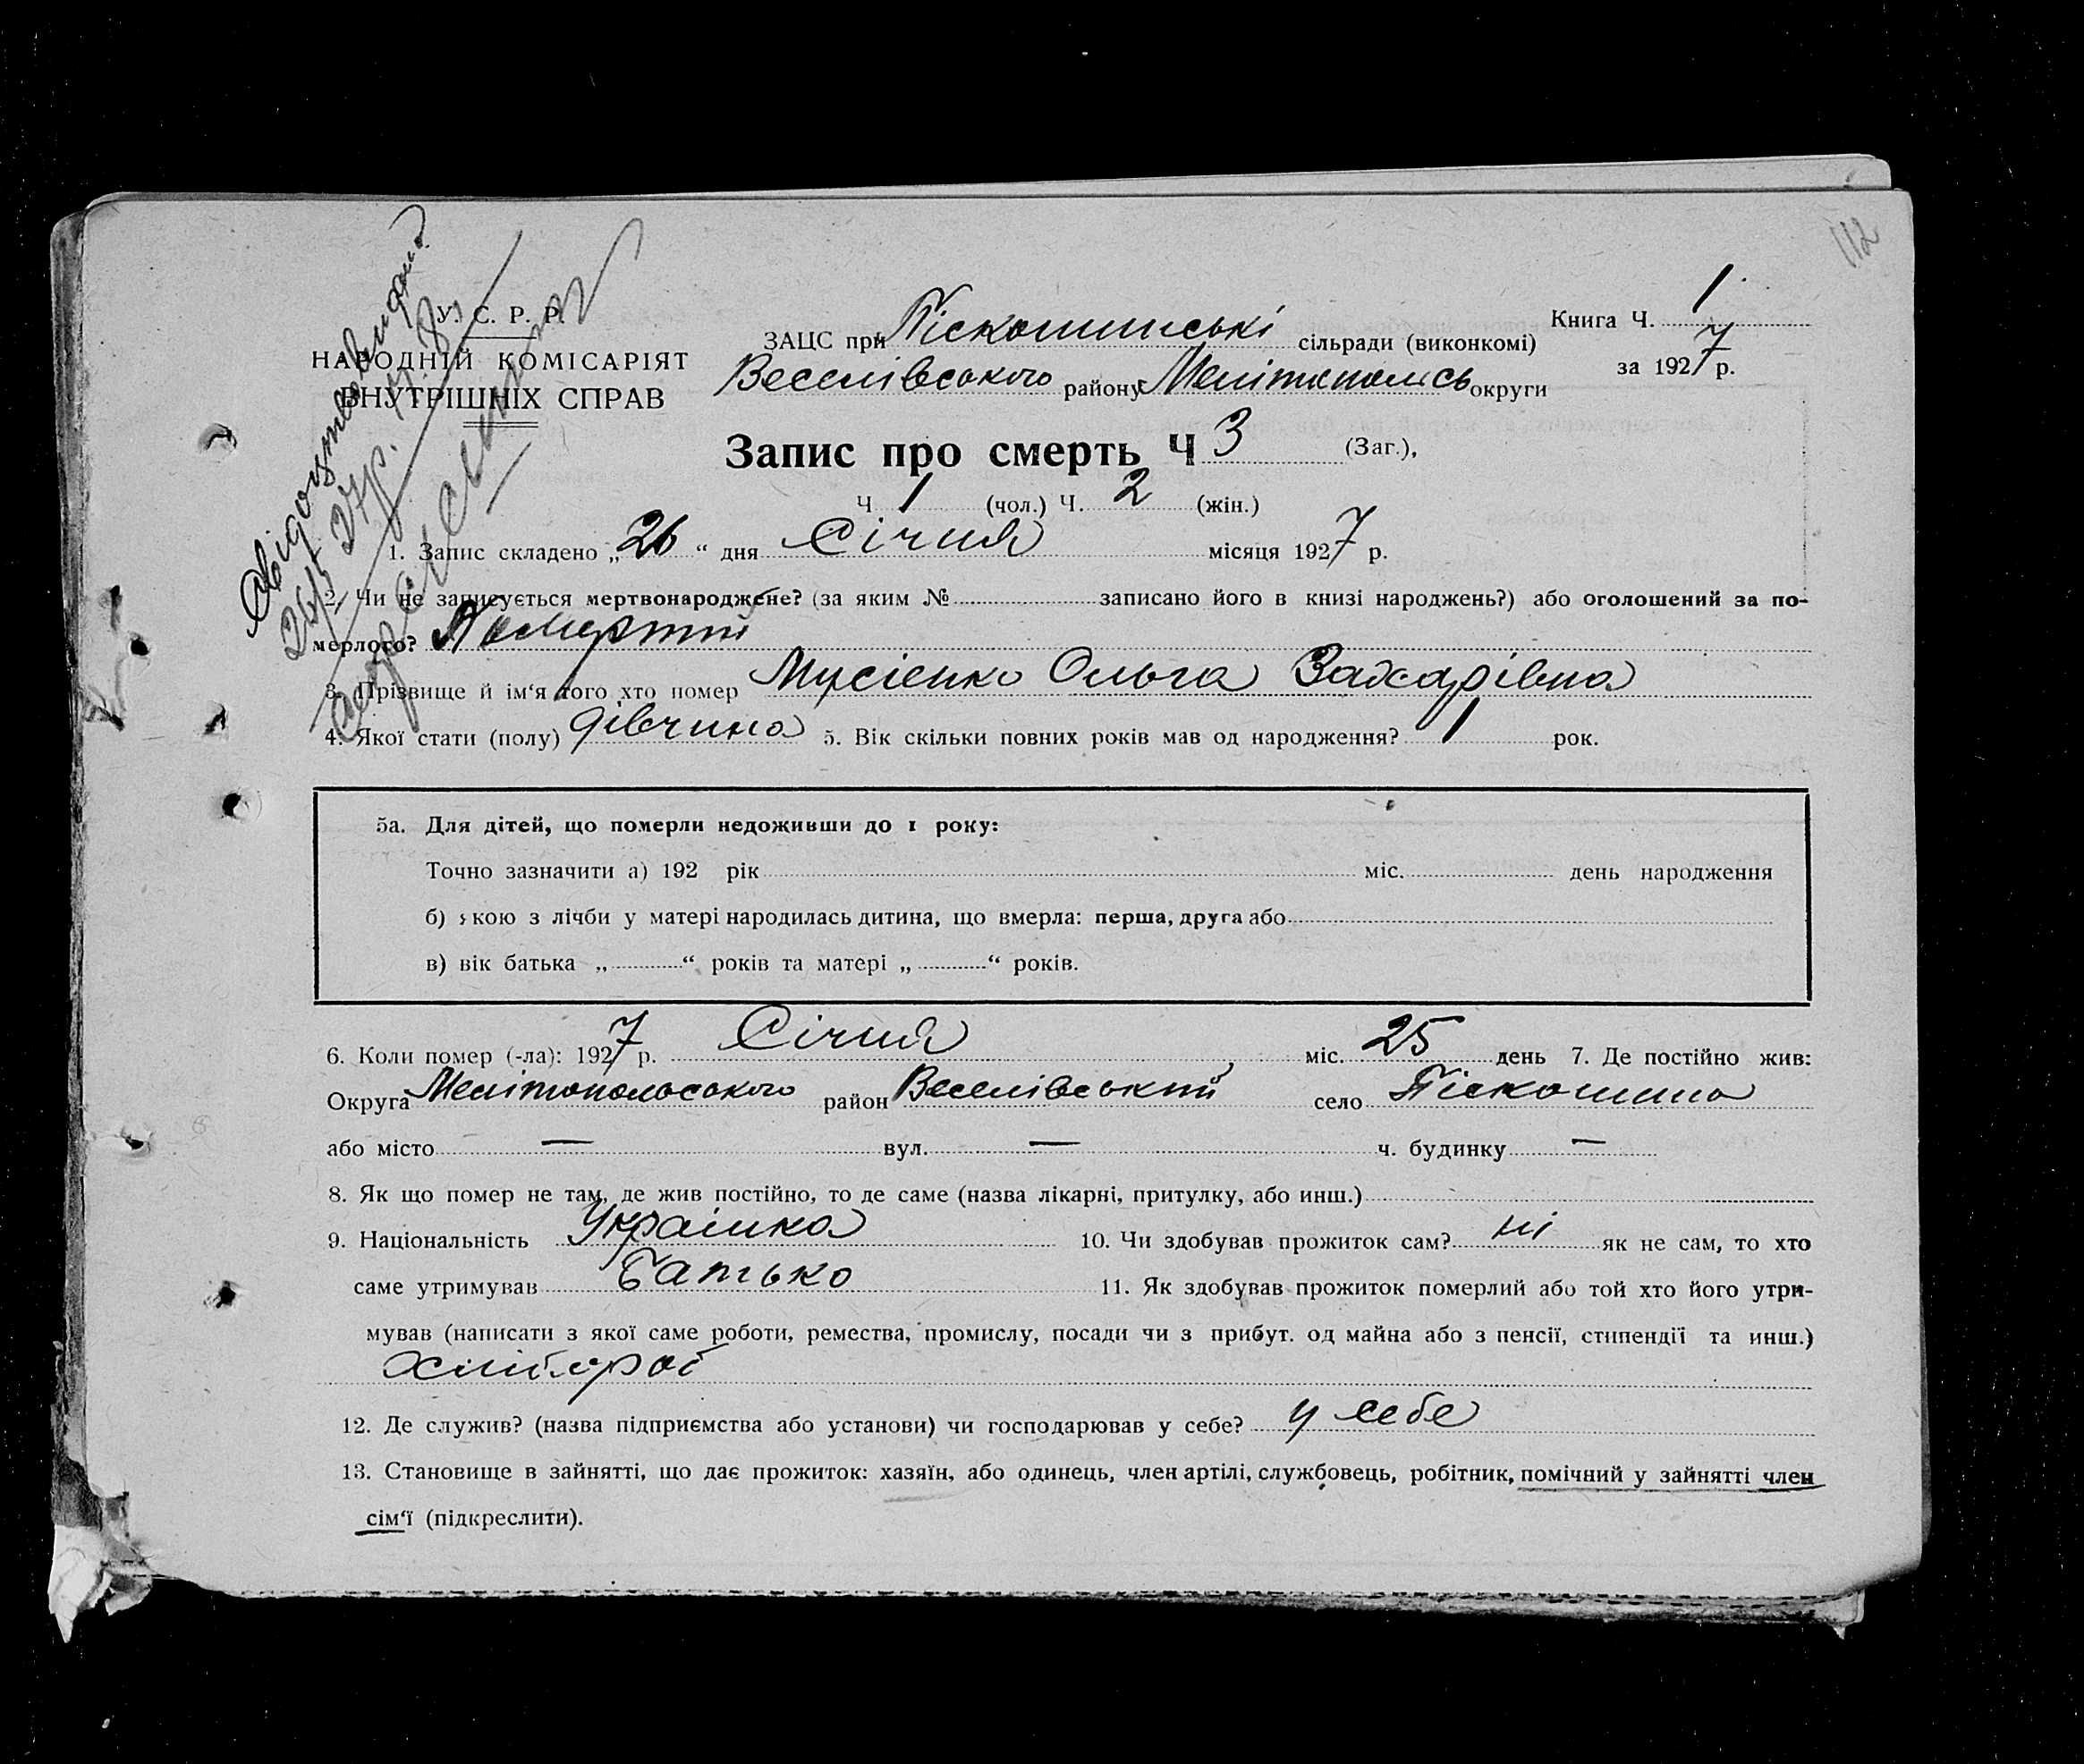 112
У. С. Р. Р.
НАРОДНІЙ КОМІСАРІЯТ
ВНУТРІШНІХ СПРАВ
ЗАЦС при Піскошинські сільради (виконкомі)
Веселівського району Мелітопольсь округи
Книга Ч. 1
за 1927 р.
Запис про смерть Ч 3 (Заг.),
Ч 1 (чол.) Ч. 2 (жін.)
1. Запис складено „26“ дня Січня місяця 1927 р.
2. Чи не записується мертвонароджене? (за яким № записано його в книзі народжень?) або оголошений за по-
мерлого? Померший
3. Прізвище й ім‘я того хто помер Мусієнко Ольга Захарівна
4. Якої стати (полу) дівчина 5. Вік скільки повних років мав од народження? 1 рок.
5а. Для дітей, що померли недоживши до 1 року:
Точно зазначити а) 192 рік міс. день народження
б) якою з лічби у матері народилась дитина, що вмерла: перша, друга або
в) вік батька „ “ років та матері „ “ років.
6. Коли помер (-ла): 1927 р. Січня міс. 25 день 7. Де постійно жив:
Округа Мелітопольського район Веселівський село Піскошино
або місто — вул. — ч. будинку —
8. Як що помер не там, де жив постійно, то де саме (назва лікарні, притулку, або инш.)
9. Національність Украінка 10. Чи здобував прожиток сам? ні як не сам, то хто
саме утримував батько 11. Як здобував прожиток померлий або той хто його утри-
мував (написати з якої саме роботи, ремества, промислу, посади чи з прибут. од майна або з пенсії, стипендії та инш.)
Хлібороб
12. Де служив? (назва підприємства або установи) чи господарював у себе? у себе
13. Становище в зайнятті, що дає прожиток: хазяїн, або одинець, член артілі, службовець, робітник, помічний у зайнятті член
сім‘ї (підкреслити).